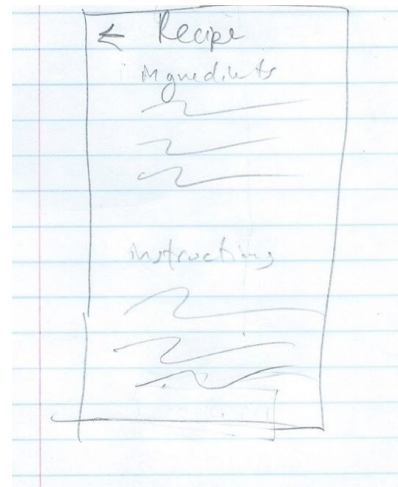 ← Recipe
ingredients
instructions